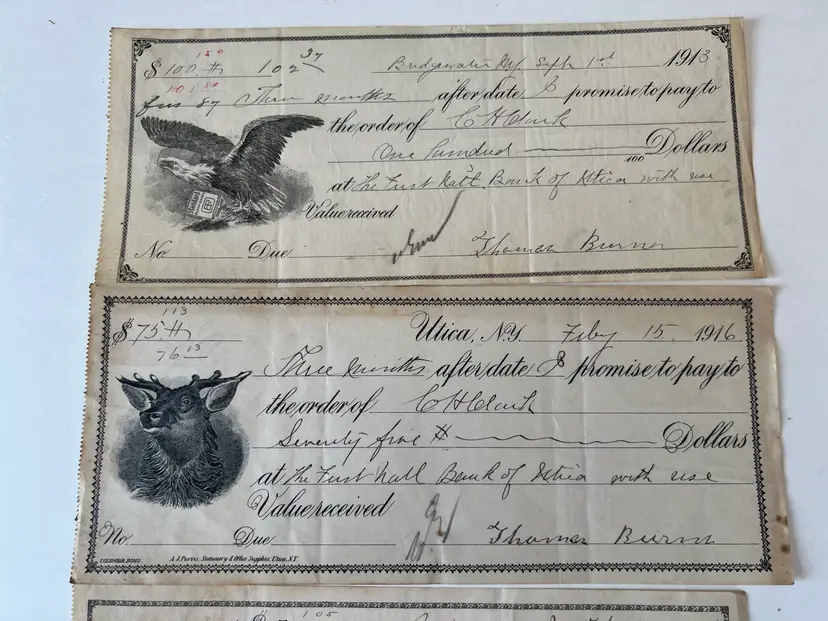 150
$ 100 102 37
Bridgewater NY Sept 1st 1913
101 50
Three months after date I promise to pay to
the order of C H Clark
One hundred 100 Dollars
at The First Natl Bank of Utica with use
Value received
No. Due Thomas Burns
113
$ 75 Utica, N.Y. Feby 15 1916
76 13
Three months after date I promise to pay to
the order of C H Clark
Seventy five Dollars
at The First Natl Bank of Utica with use
Value received
No. Due Thomas Burns
COLUMBIA BOND A.J. Purves, Stationery & Office Supplies, Utica, N.Y.
105
$